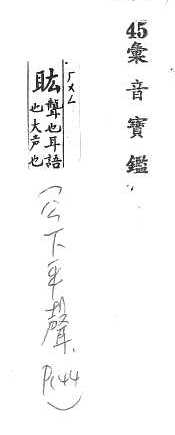 45彙音寶鑑
耾
聾也耳語
也大声也
(公下平聲, P144)